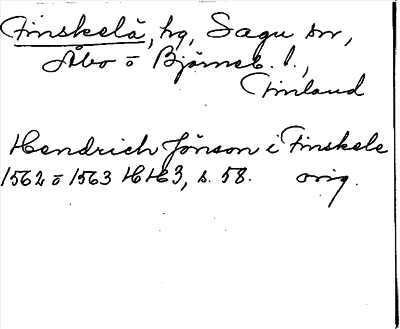 Finskelä, hg, Sagu sn,
Åbo o Björneb. l.,
Finland
Hendrich Jönson i Finskele
1562 o 1563 HH3, s. 58. orig.